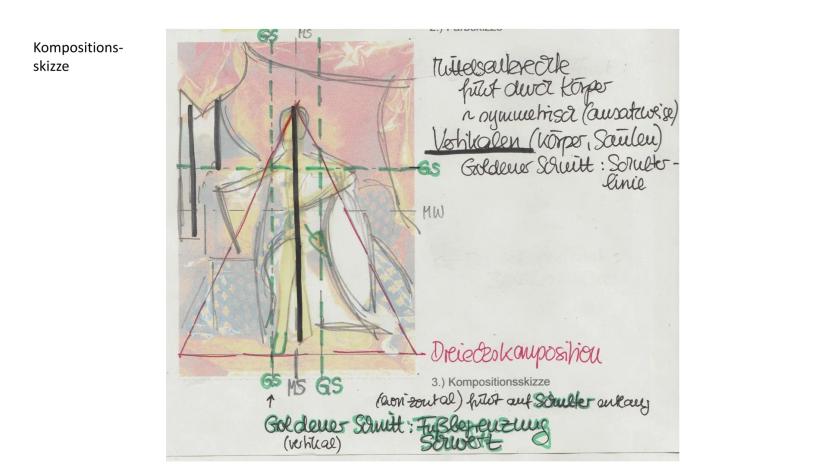 Kompositions-
skizze
GS MS
Mittelsenkrechte
führt durch Körper
~ symmetrisch (ansatzweise)
Vertikalen (Körper, Säulen)
GS Goldener Schnitt : Schulter-
linie
MW
Dreieckskomposition
GS MS GS
3.) Kompositionsskizze
(horizontal) führt auf Schulter entlang
↑
Goldener Schnitt : Fußbegrenzung
(vertikal) Schwert